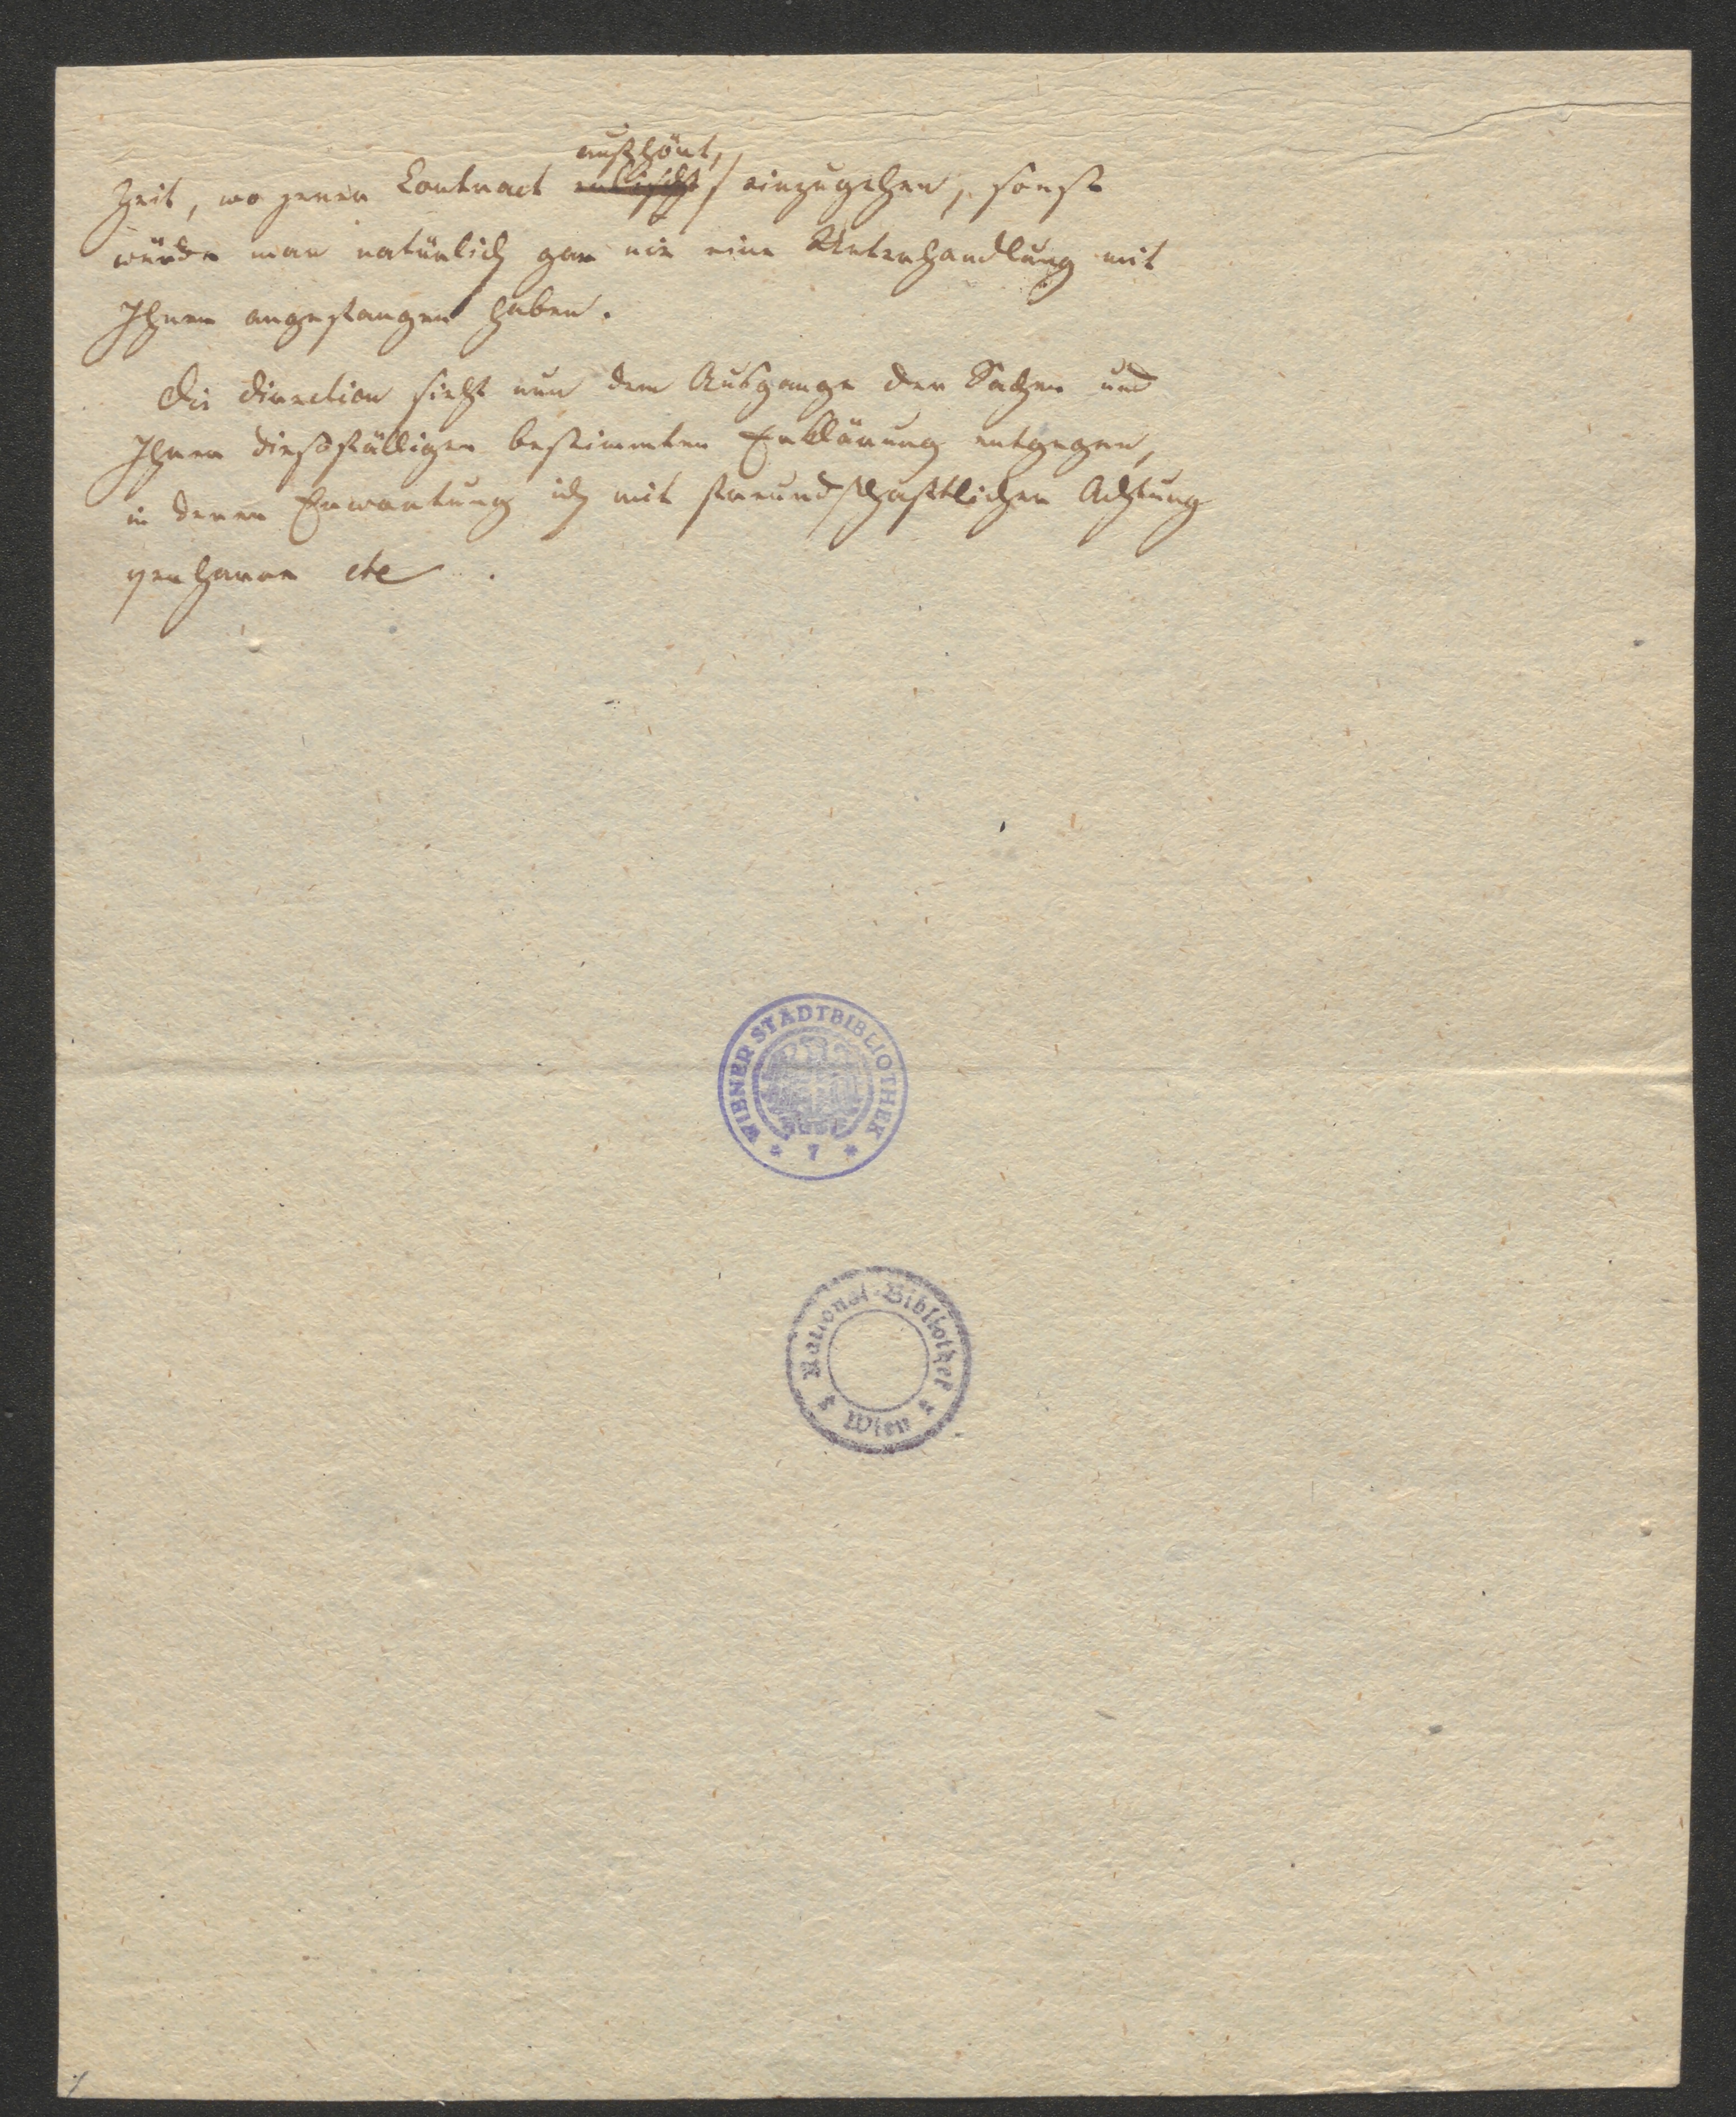 aufhört,
Zeit, wo jener Contract erlischt / einzugehen, sonst
würde man natürlich gar nie eine Unterhandlung mit
Ihnen angefangen haben.
Die Direction sieht nun dem Ausgange der Sache und
Ihrer dießfälligen bestimmten Erklärung entgegen,
in deren Erwartung ich mit freundschaftlicher Achtung
verharre etc.
WIENER STADTBIBLIOTHEK
* 7 *
National-Bibliothek
Wien